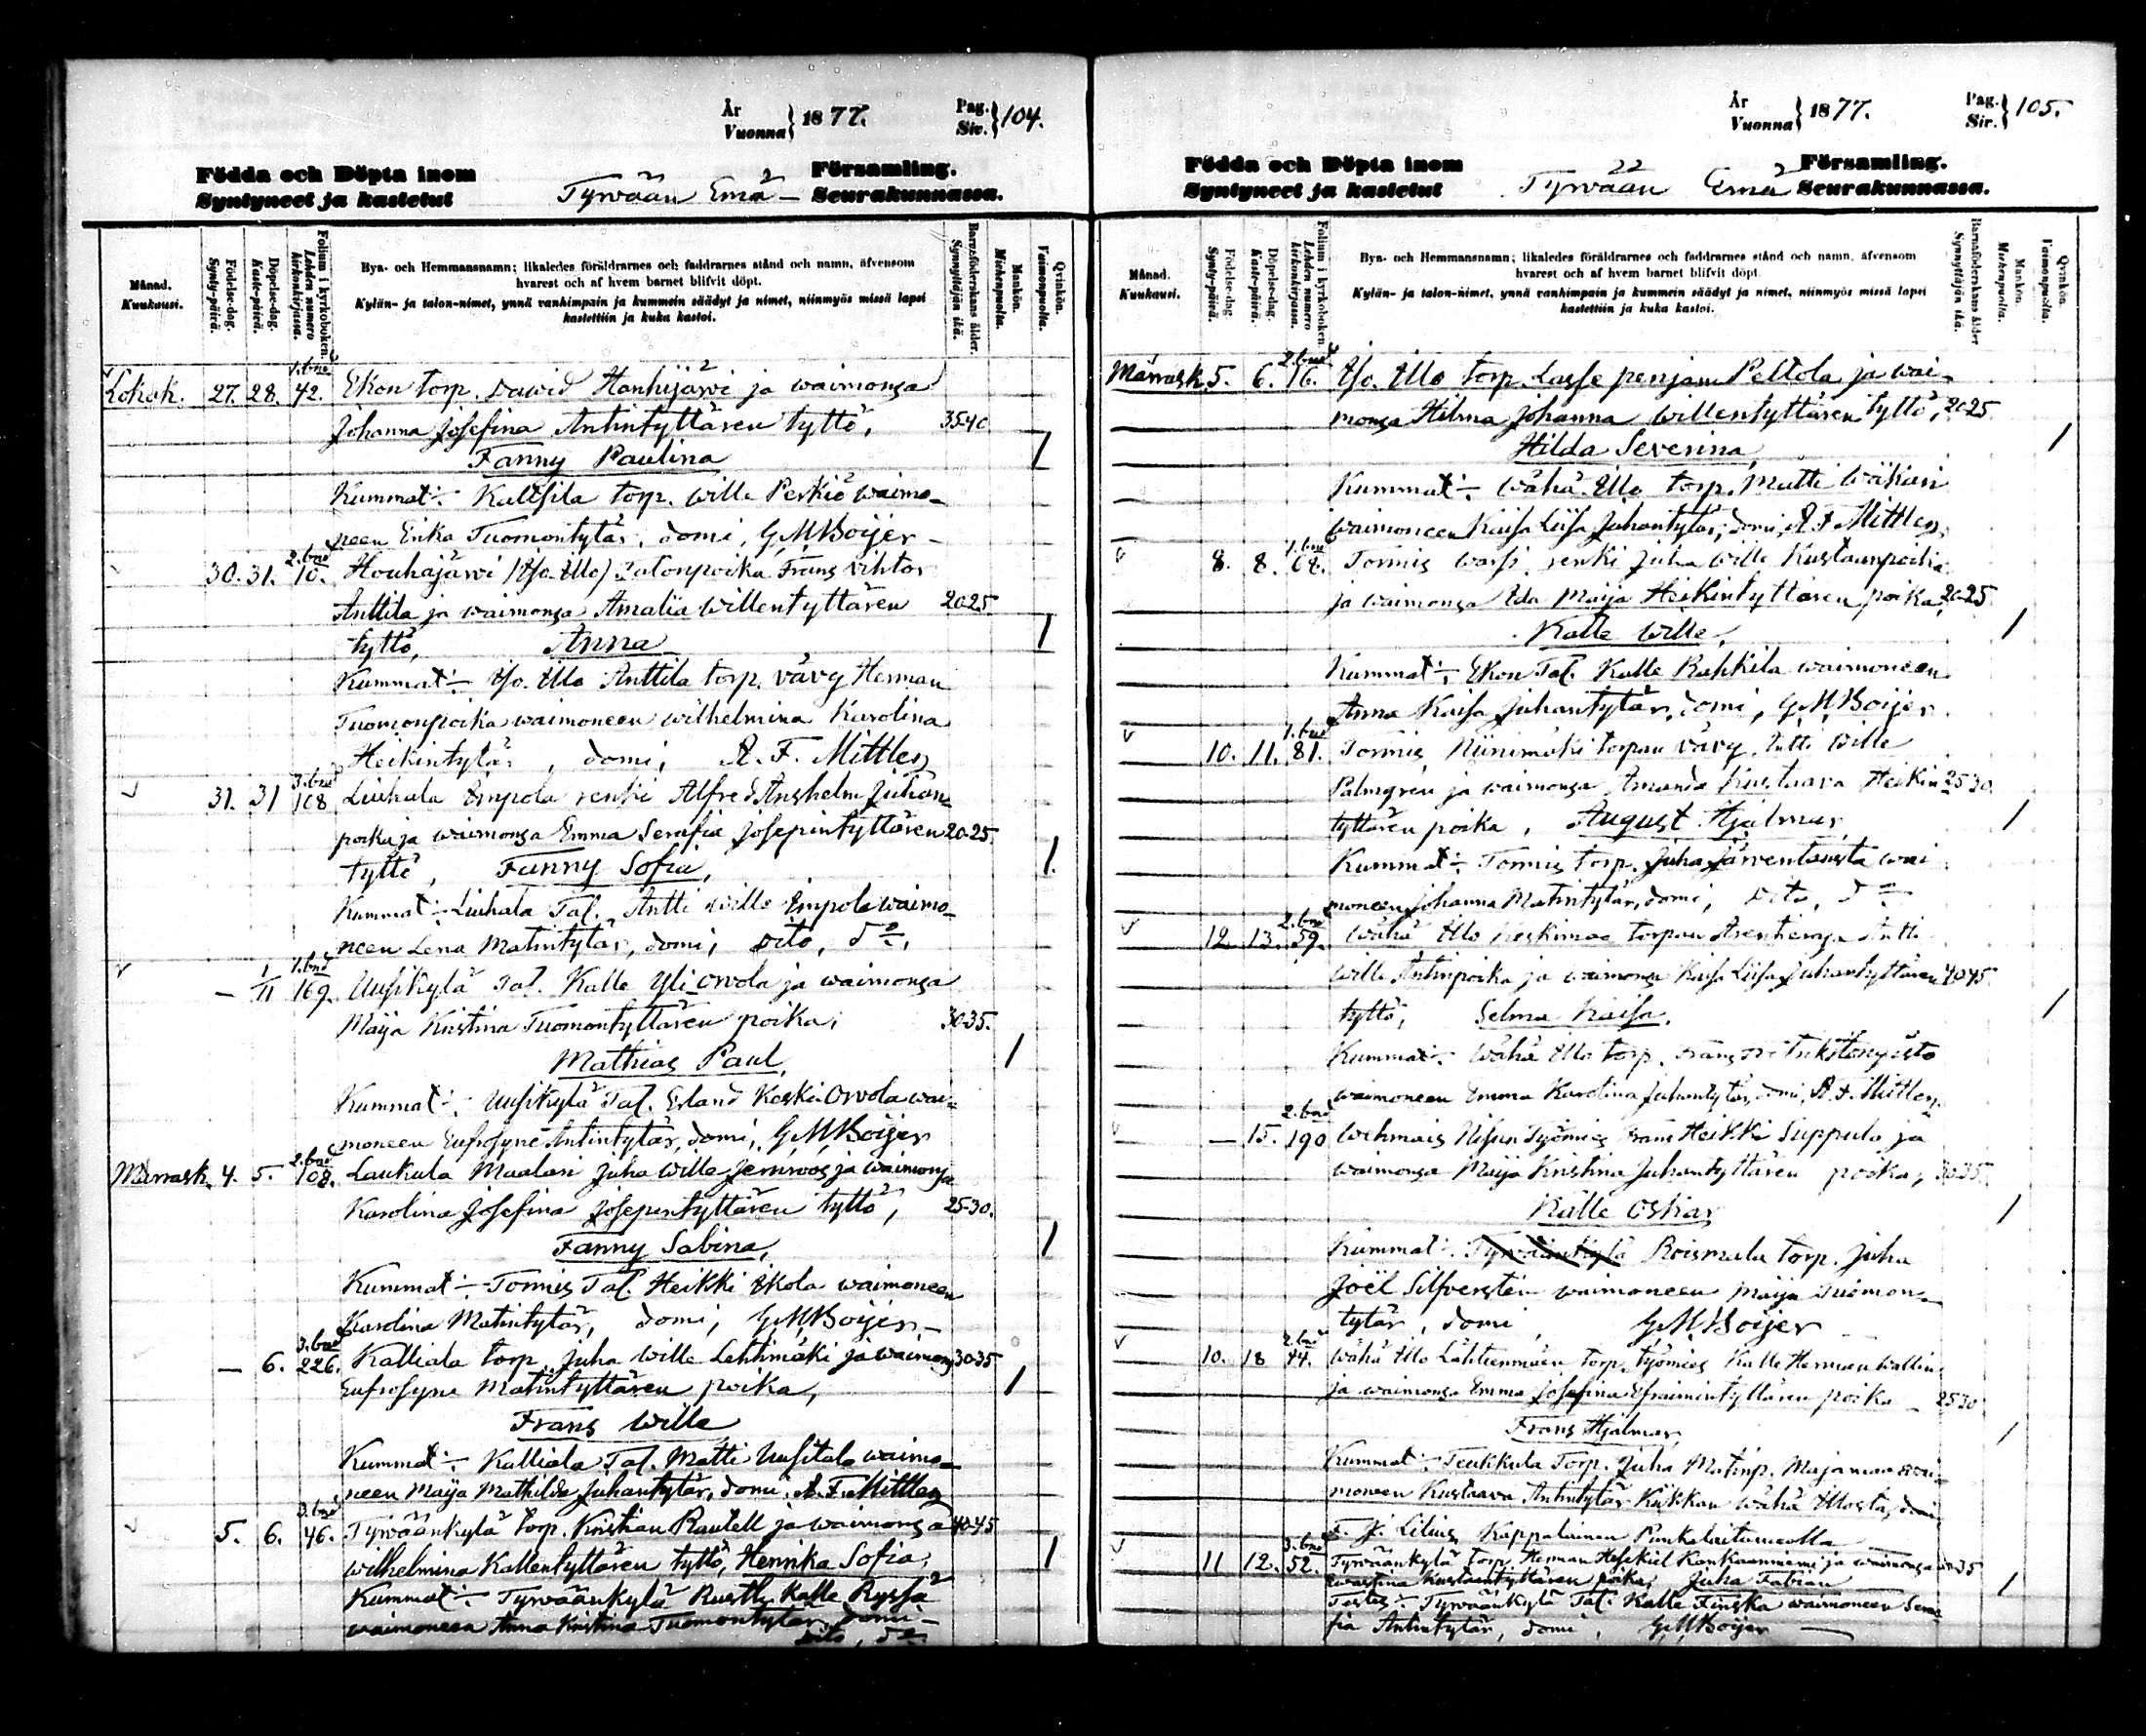 År
Vuonna } 1877.
Pag.
Siv. } 104.
Födda och Döpta inom
Syntyneet ja kastetut
Tyrvään Emä –
Församling.
Seurakunnassa.
Månad.
Kuukausi.
Födelse-dag.
Synty-päivä.
Döpelse-dag.
Kaste-päivä.
Folium i kyrkoboken.
Lehden numero
kirkonkirjassa.
Bya- och Hemmansnamn; likaledes föräldrarnes och faddrarnes stånd och namn, äfvensom
hvarest och af hvem barnet blifvit döpt.
Kylän- ja talon-nimet, ynnä vanhimpain ja kummein säädyt ja nimet, niinmyös missä lapsi
kastettiin ja kuka kastoi.
Barnföderskans ålder.
Synnyttäjän ikä.
Mankön.
Miehenpuolia.
Qvinkön.
Vaimonpuolia.
Lokak. 27. 28. 1.bnd 42. Ekon torp. David Hanhijärvi ja waimonsa
Johanna Josefina Antintyttären tyttö, 35-40
Fanny Paulina 1
Kummat:- Kallsila torp. Wille Perkiö waimo-
neen Erika Tuomontytär, domi, G M Boijer –
30. 31. 2.bnd 10. Houhajärvi /Iso-Illo/ Talonpoika Frans Vihtor
Anttila ja waimonsa Amalia Willentyttären 20-25
tyttö, Anna 1
Kummat:- Iso. Illo Anttila torp. vävy Herman
Tuomonpoika waimoneen Wilhelmina Karolina
Heikintytär, domi, A. F. Mittler
31. 31 3.bnd 108 Liuhala Empola renki Alfred Anshelm Juhan-
poika ja waimonsa Emma Serafia Josepintyttären 20-25
tyttö, Fanny Sofia, 1.
Kummat:- Liuhala Tal. Antti Wille Empola waimo-
neen Lena Matintytär, domi, dito, d:o,
– 1/11 1.bnd 169. Uusikylä Tal. Kalle Yli-Orvola ja waimonsa
Maija Kristina Tuomontyttären poika, 30-35.
Mathias Paul, 1
Kummat:- Uusikylä Tal. Erland Keski-Orvola wai-
moneen Eufrosyne Antintytär, domi, G M Boijer
Marrask. 4. 5. 2.bnd 108. Laukula Maalari Juha Wille Jernroos ja waimonsa
Karolina Josefina Josepintyttären tyttö, 25-30.
Fanny Sabina, 1
Kummat:- Tormis Tal. Heikki Ekola waimoneen
Karolina Matintytär, domi, G M Boijer –
– 6. 3.bnd 226. Kalliala torp. Juha Wille Lehtimäki ja waimonsa 30-35
Eufrosyne Matintyttären poika, 1
Frans Wille
Kummat:- Kalliala Tal. Matti Uusitalo waimo-
neen Maija Mathilda Juhantytär, domi. A. F. Mittler
5. 6. 3.bnd 46. Tyrväänkylä torp. Kristian Rautell ja waimonsa 40-45
Wilhelmina Kallentyttären tyttö, Henrika Sofia, 1
Kummat:- Tyrväänkylä Rusth. Kalle Ryssä
waimoneen Anna Kristina Tuomontytär domi –
dito, d:o
År
Vuonna } 1877.
Pag.
Sir. } 105.
Födda och Döpta inom
Syntyneet ja kastetut
Tyrvään Emä
Församling.
Seurakunnassa.
Månad.
Kuukausi.
Födelse-dag.
Synty-päivä.
Döpelse-dag.
Kaste-päivä.
Folium i kyrkoboken.
Lehden numero
kirkonkirjassa.
Bya- och Hemmansnamn; likaledes föräldrarnes och faddrarnes stånd och namn, äfvensom
hvarest och af hvem barnet blifvit döpt.
Kylän- ja talon-nimet, ynnä vanhimpain ja kummein säädyt ja nimet, niinmyös missä lapsi
kastettiin ja kuka kastoi.
Barnföderskans ålder
Synnyttäjän ikä.
Mankön.
Miehenpuolia.
Qvinkön.
Vaimonpuolia.
Marrask. 5. 6. 2.bnd 16. Iso. Illo torp. Lasse penjam Peltola ja wai-
monsa Hilma Johanna Willentyttären tyttö, 20-25
Hilda Severina, 1
Kummat:- Wähä Illo torp. Matti Wiikari
waimoneen Kaisa Liisa Juhantytär, domi, A. F. Mittler
8. 8. 1.bnd 68. Tormis renki Juha Wille Kustaanpoika
ja waimonsa Ida Maija Heikintyttären poika, 20-25
Kalle Wille, 1
Kummat:- Ekon Tal. Kalle Rahkila waimoneen
Anna Kaisa Juhantytär, domi, G M Boijer
10. 11. 1.bnd 81. Tormis, Niinimäki torpan vävy Antti Wille
Palmgren ja waimonsa Amanda Kustaava Heikin- 25-30.
tyttären poika, August Hjalmar, 1
Kummat:- Tormis torp. Juha Järventausta wai-
moneen Johanna Matintytär, domi, dito, d:o
12. 13. 2.bnd 59. Wähä Illo torpan Antti
Wille Antinpoika ja waimonsa Kaisa Liisa Juhantyttären 40-45
tyttö, Selma Kaisa, 1
Kummat:- Wähä Illo torp. Frans
waimoneen Emma Karolina Juhantytär, domi, A. F. Mittler
– 15. 2.bnd 190 Wehmais Nisun Työmies Frans Heikki Suppula ja
waimonsa Maija Kristina Juhantyttären poika, 30-35
Kalle Oskar 1
Kummat:- Tyrväänkylä Roismala torp. Juha
Joël Silfverstén waimoneen Maija Tuomon-
tytär, domi, G M Boijer
10. 18 2.bnd 44. Wähä Illo Lähteenmäen torp. työmies Kalle Herman Wallin
ja waimonsa Emma Josefina Efraimintyttären poika 25-30
Frans Hjalmar, 1
Kummat:- Teukkula Torp. Juha Matinp. Majamaa wai-
moneen Kustaava Antintytär Kiikkan Wähä Illosta, domi
F. J. Lilius Kappalainen Punkalaitumella
11 12. 3.bnd 52. Tyrväänkylä torp. Herman Heskiel Kankaanniemi ja waimonsa 30-35
Evastina Kustaantyttären poika, Juha Fabian 1
Testes:- Tyrväänkylä Tal. Kalle Finska waimoneen Sera-
fia Antintytär, domi, G M Boijer –